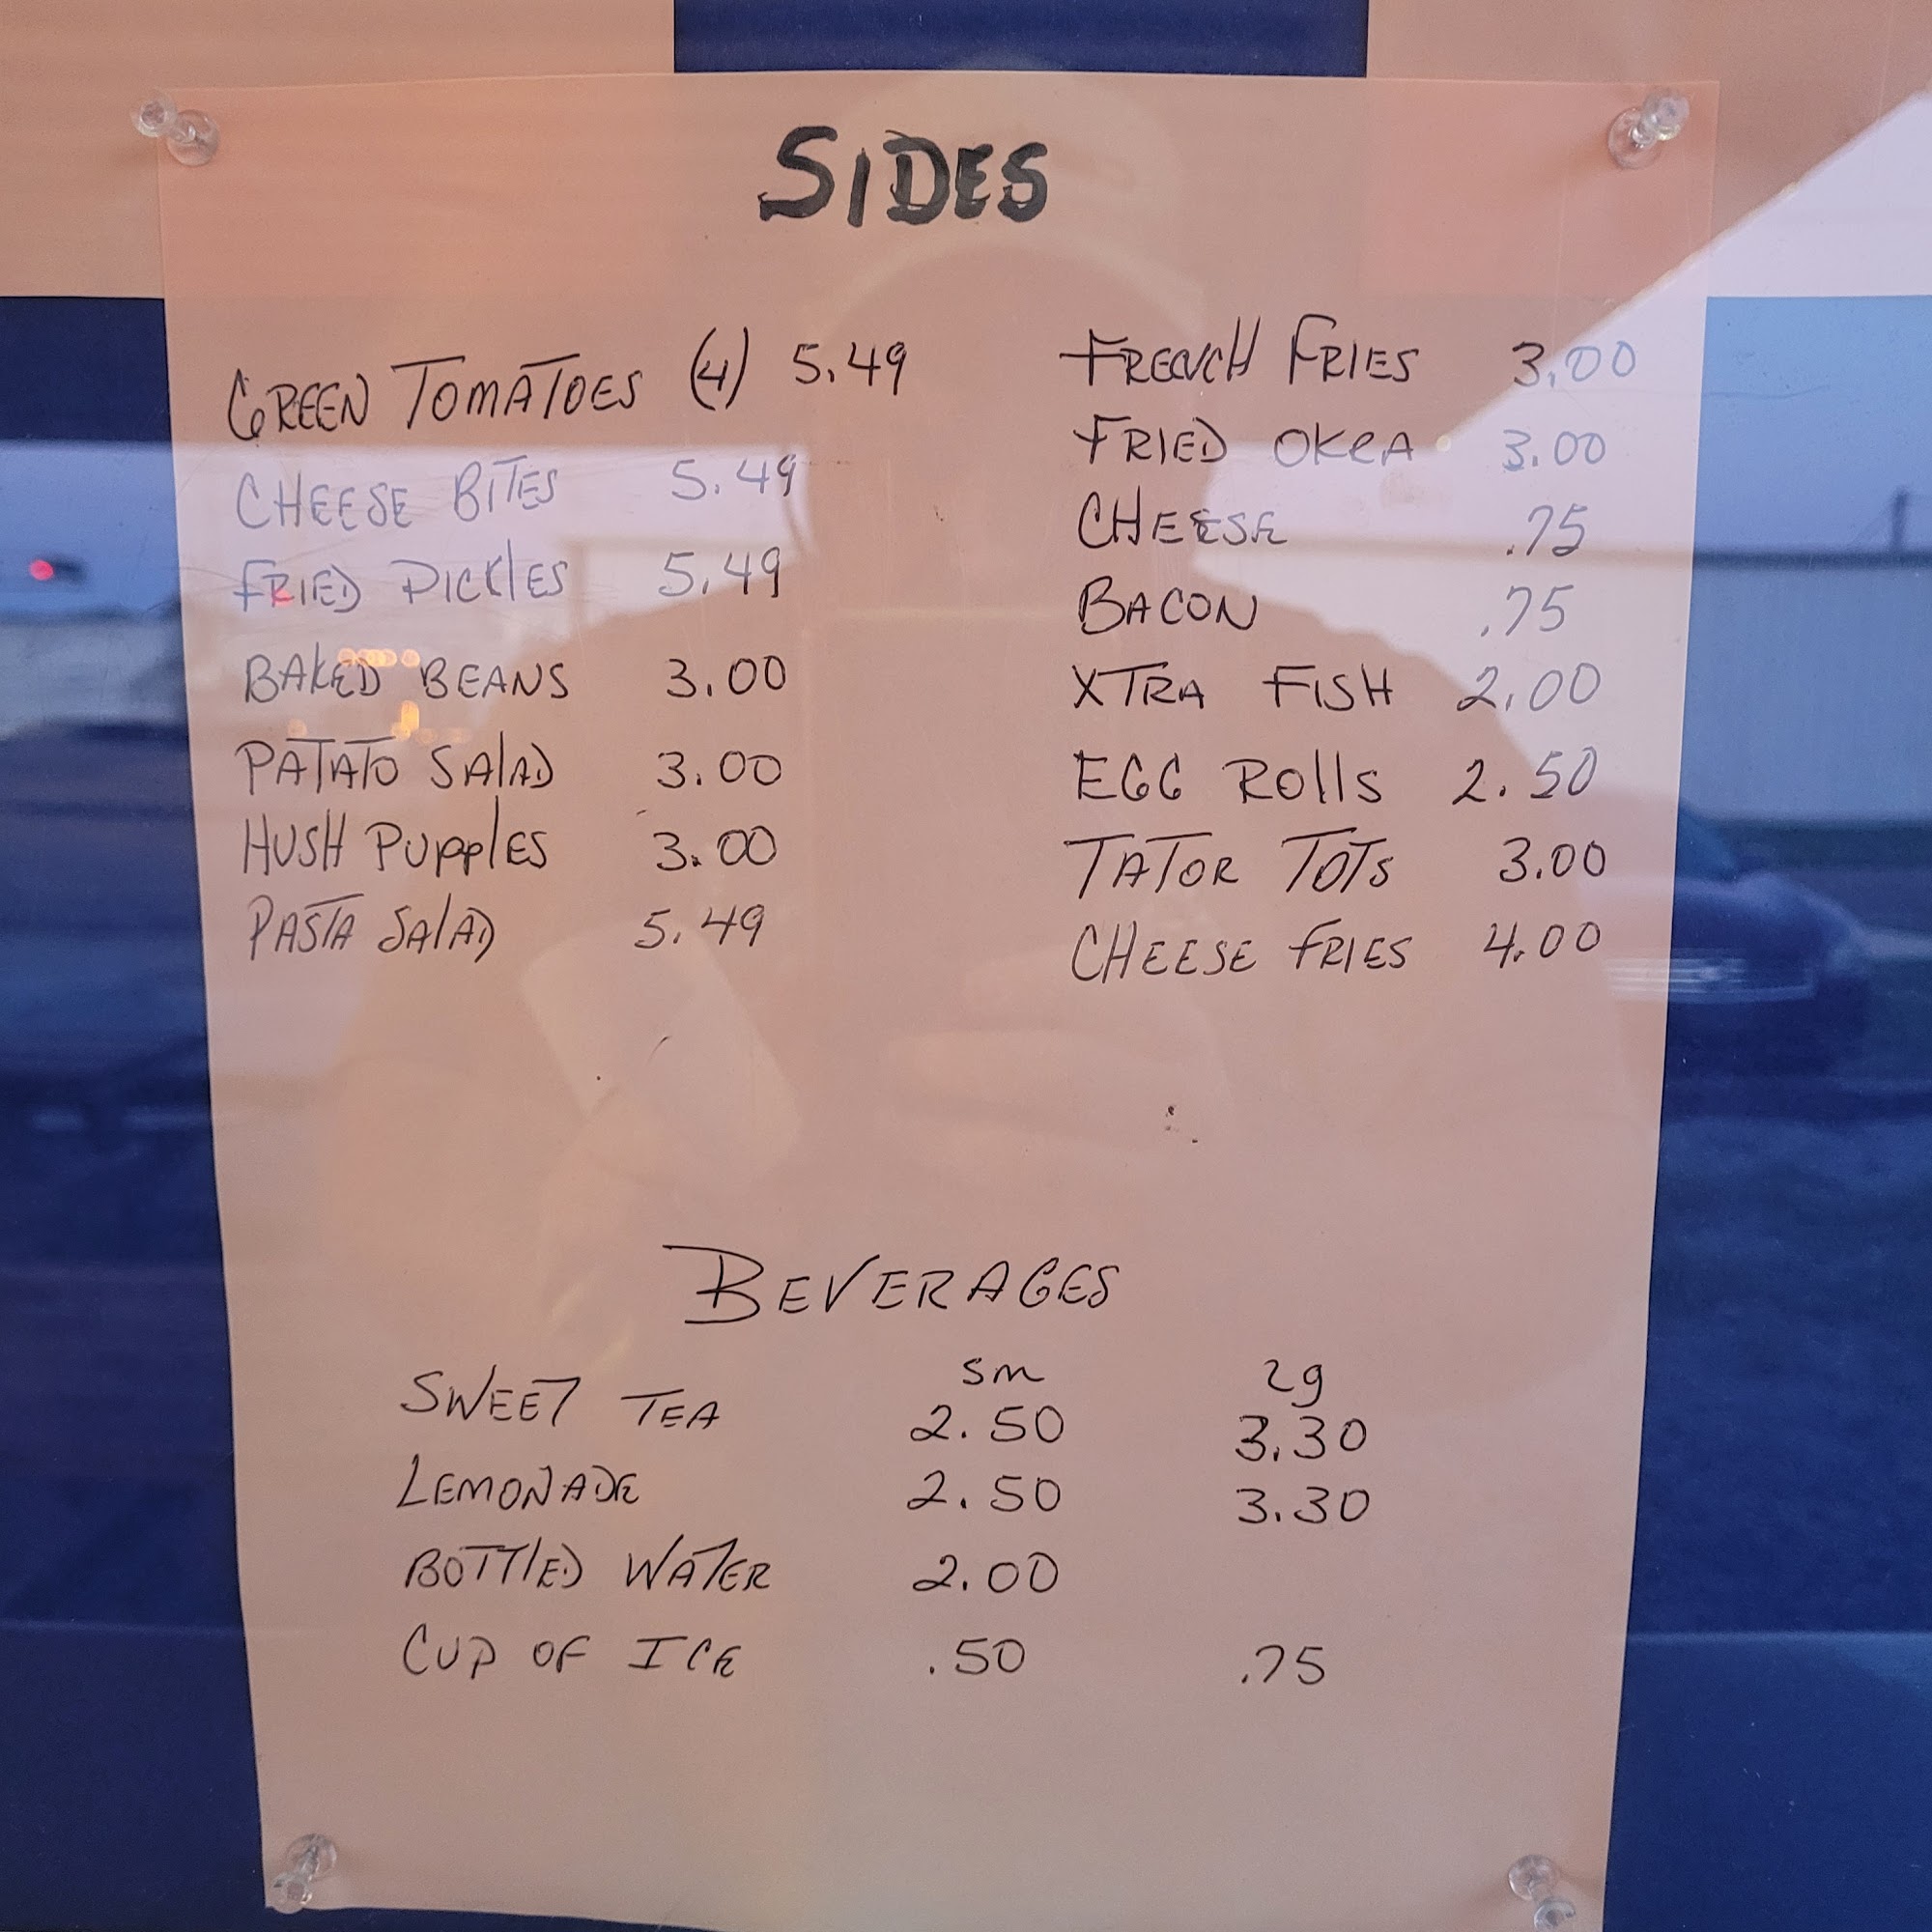 SIDES
GREEN TOMATOES (4) 5.49
CHEESE BITES 5.49
FRIED PICKLES 5.49
BAKED BEANS 3.00
PATATO SALAD 3.00
HUSH PUPPIES 3.00
PASTA SALAD 5.49
FRENCH FRIES 3.00
FRIED OKRA 3.00
CHEESE .75
BACON .75
XTRA FISH 2.00
EGG ROLLS 2.50
TATOR TOTS 3.00
CHEESE FRIES 4.00
BEVERAGES
sm lg
SWEET TEA 2.50 3.30
LEMONADE 2.50 3.30
BOTTLED WATER 2.00
CUP OF ICE .50 .75